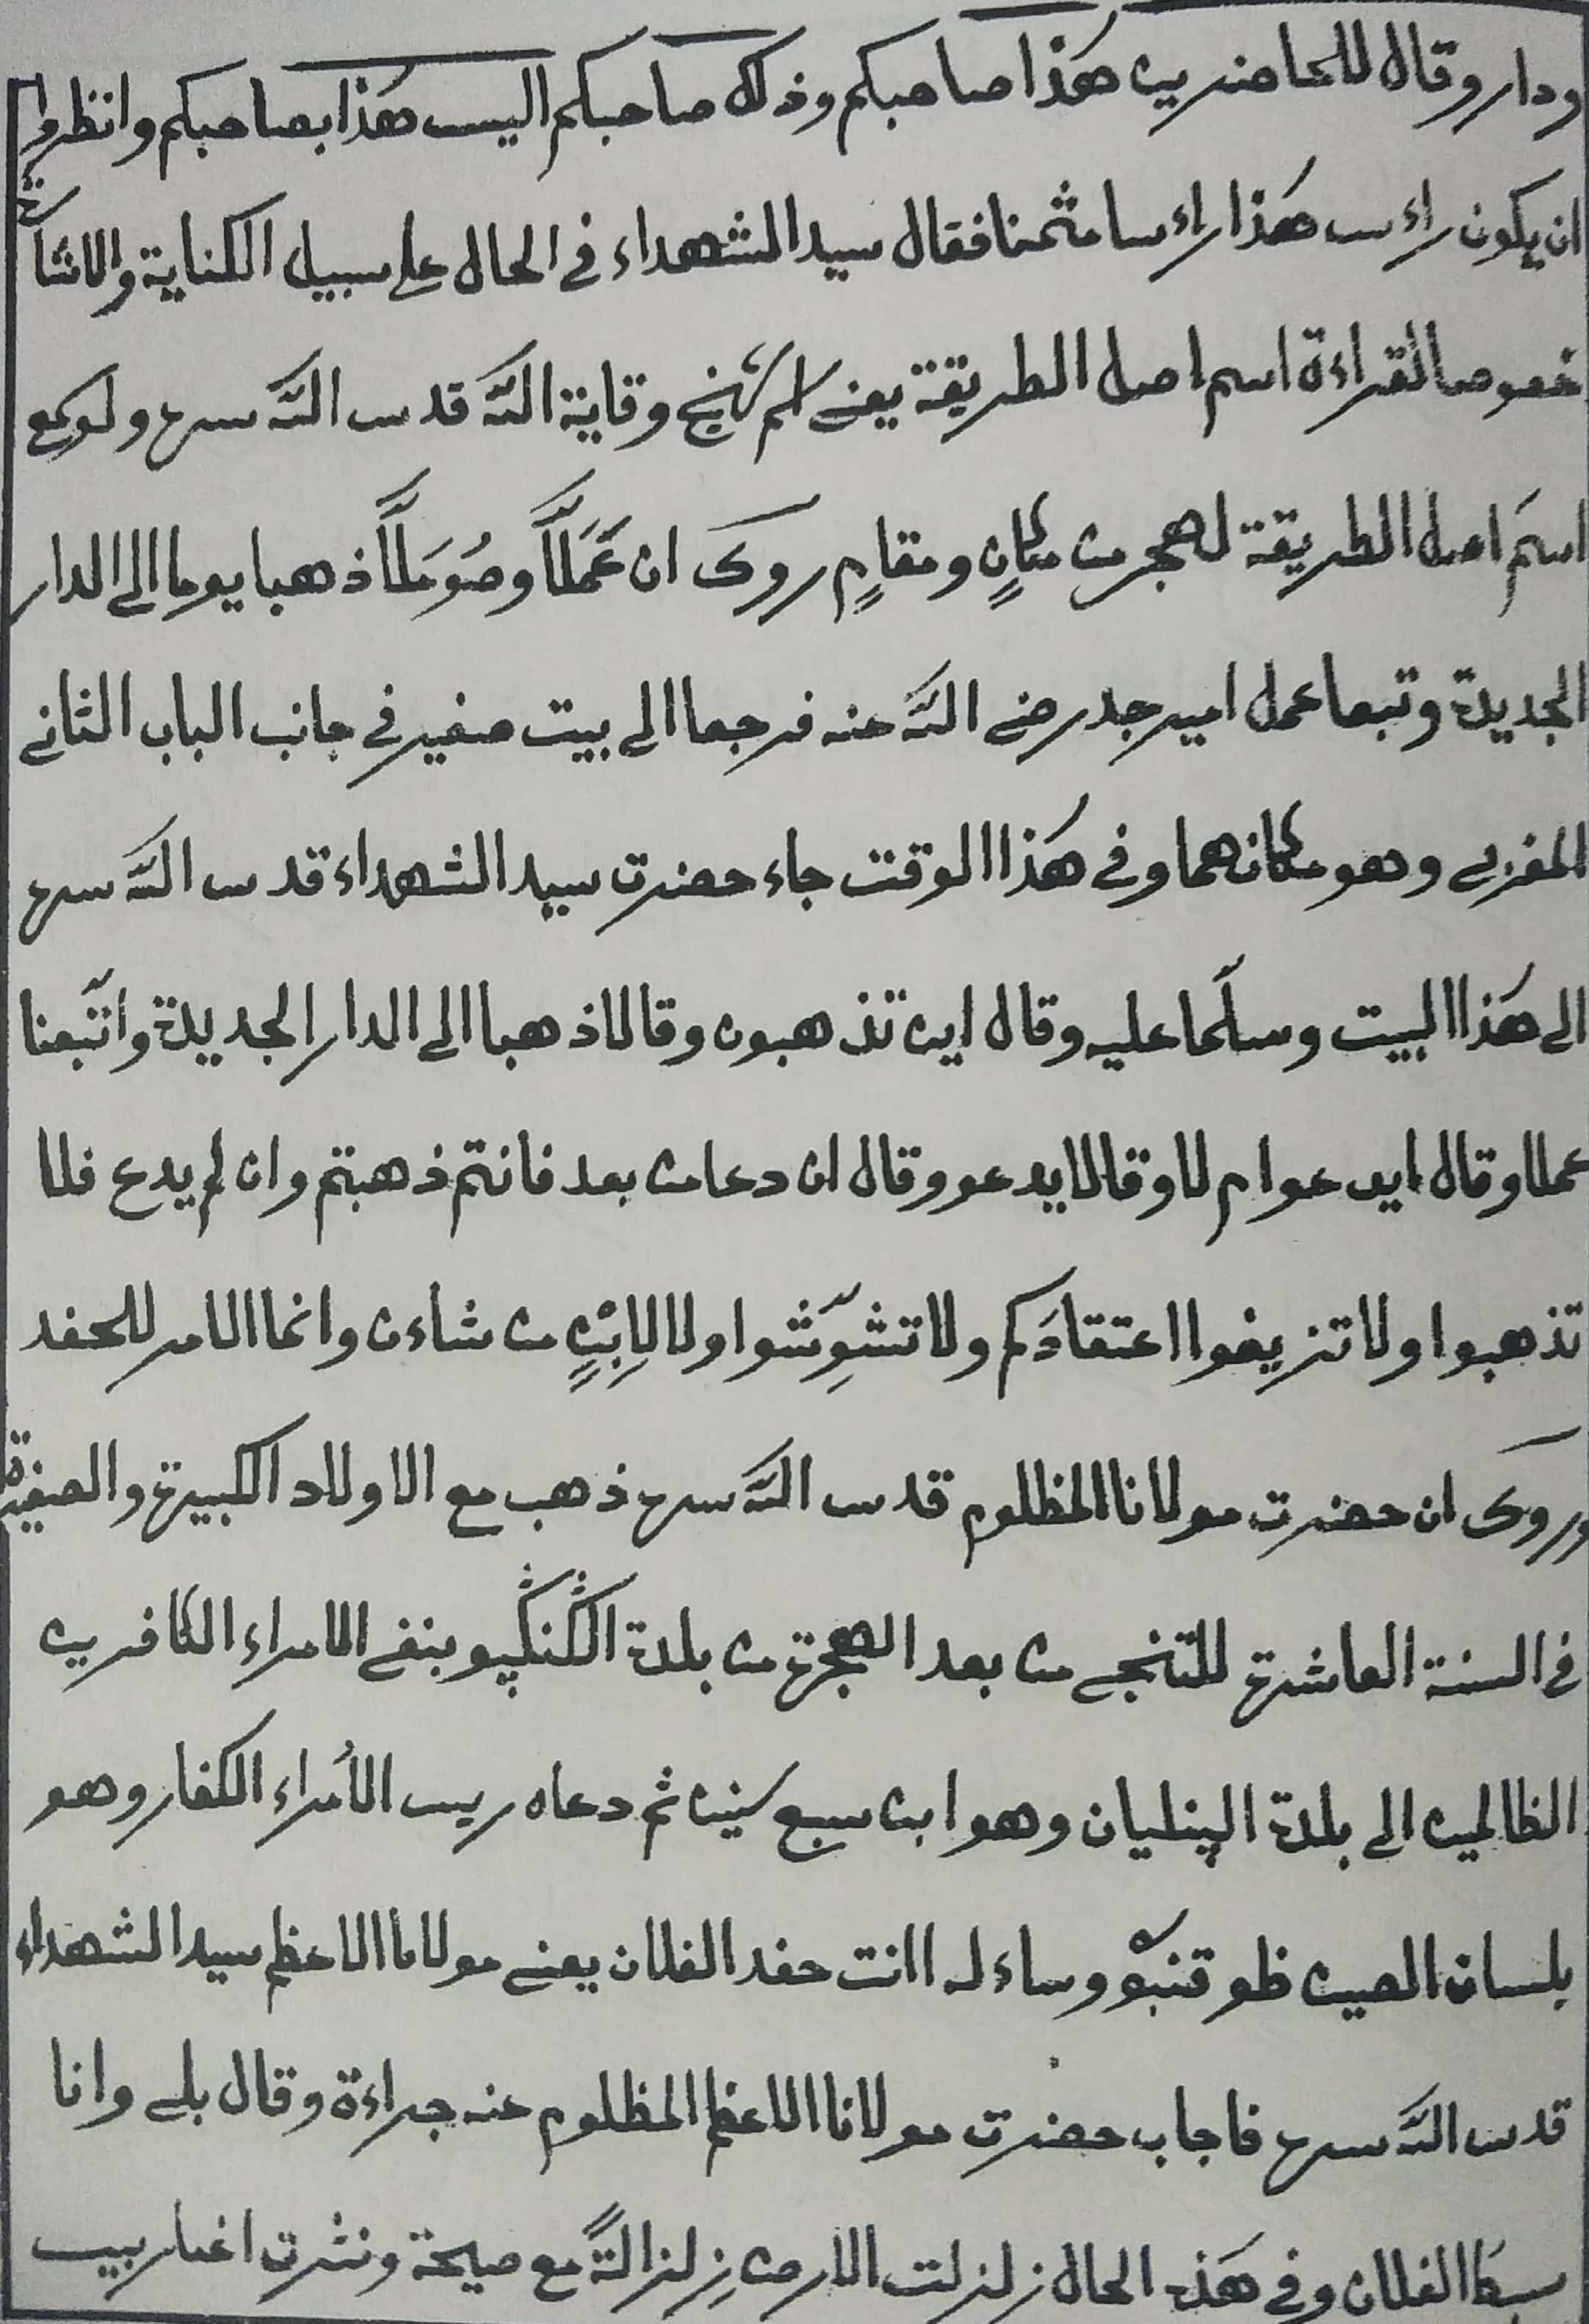 ودار وقال للحاضرين هذا صاحبكم وذلك صاحبكم اليس هذا بصاحبكم وانظروا
ان يكون راءس هذا راءسا مثمنا فقال سيد الشهداء في الحال علي سبيل الكناية والاشارة
خصوصا لقراءة اسم اصل الطريقة يعني وقاية الله قدس الله سره ولو
اسم اصل الطريقة لهجر من مكانٍ ومقامٍ روى ان عَمَلاًّ وصُومَلاًّ ذهبا يوما الى الدار
الجديدة وتبعا عمل امير جد رضي الله عنه فرجعا الى بيت صغير في جانب الباب الثاني
المغربي وهو مكانهما وفي هذا الوقت جاء حضرت سيد الشهداء قدس الله سره
الى هذا البيت وسلّما عليه وقال اين تذهبون وقالا ذهبا الى الدار الجديدة واتّبعنا
عملا وقال ايدعوا م لا وقالا يدعو وقال ان دعا من بعد فانتم ذهبتم وان لم يدع فلا
تذهبوا ولا تزيغوا اعتقادَكم ولا تشوِّشوا ولا لِابْنٍ من شاءن وانما الامر للحفد
وروى ان حضرت مولانا المظلوم قدس الله سره ذهب مع الاولاد الكبيرة والصغيرة
في السنة العاشرة للتنجي من بعد الهجرة من بلدة الڭنڭپو بنفي الامراء الكافرين
الظالمين الى بلدة الپنليان وهو ابن سبع سنين ثم دعاه ريس الأمراء الكفار وهو
بلسان الصين ظو قنبو وساءله اانت حفد الفلان يعني مولانا الاعظم سيد الشهداء
قدس الله سره فاجاب حضرت مولانا الاعظم المظلوم عنه جراءة وقال بلي وانا
الفلان وفي هذه الحال زلزلت الارض زِلزالةً مع صيحة ونشرت